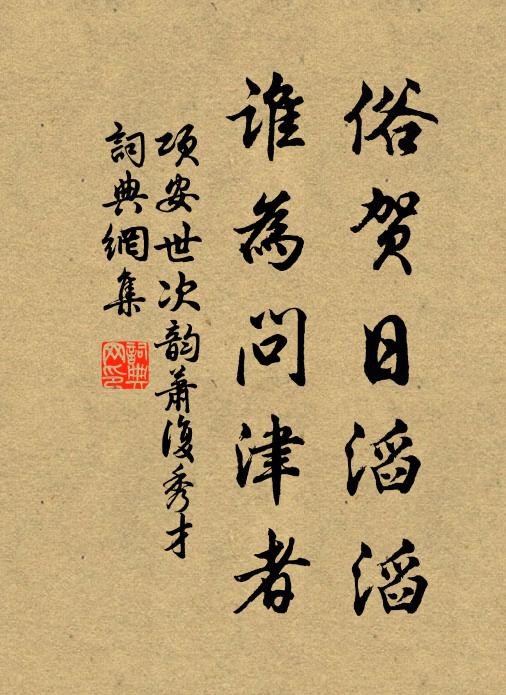 俗贺日滔滔
谁為问津者
项安世次韵萧復秀才
詞典網集
詞典网印